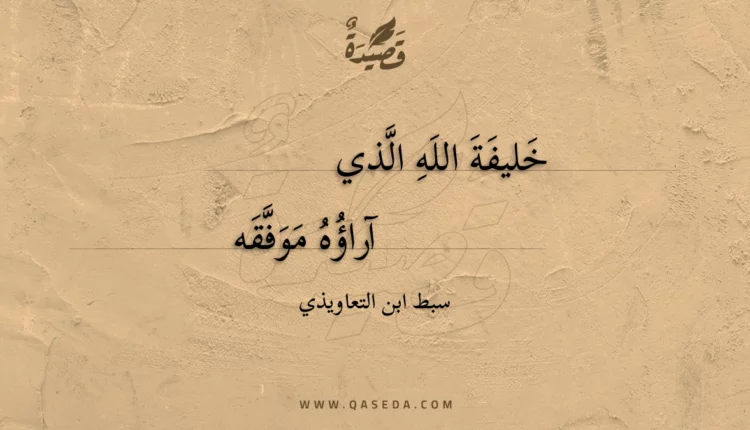 قَصِيدَةٌ
خَليفَةَ اللَهِ الَّذي
آراؤُهُ مَوَفَّقَه
سبط ابن التعاويذي
WWW.QASEDA.COM